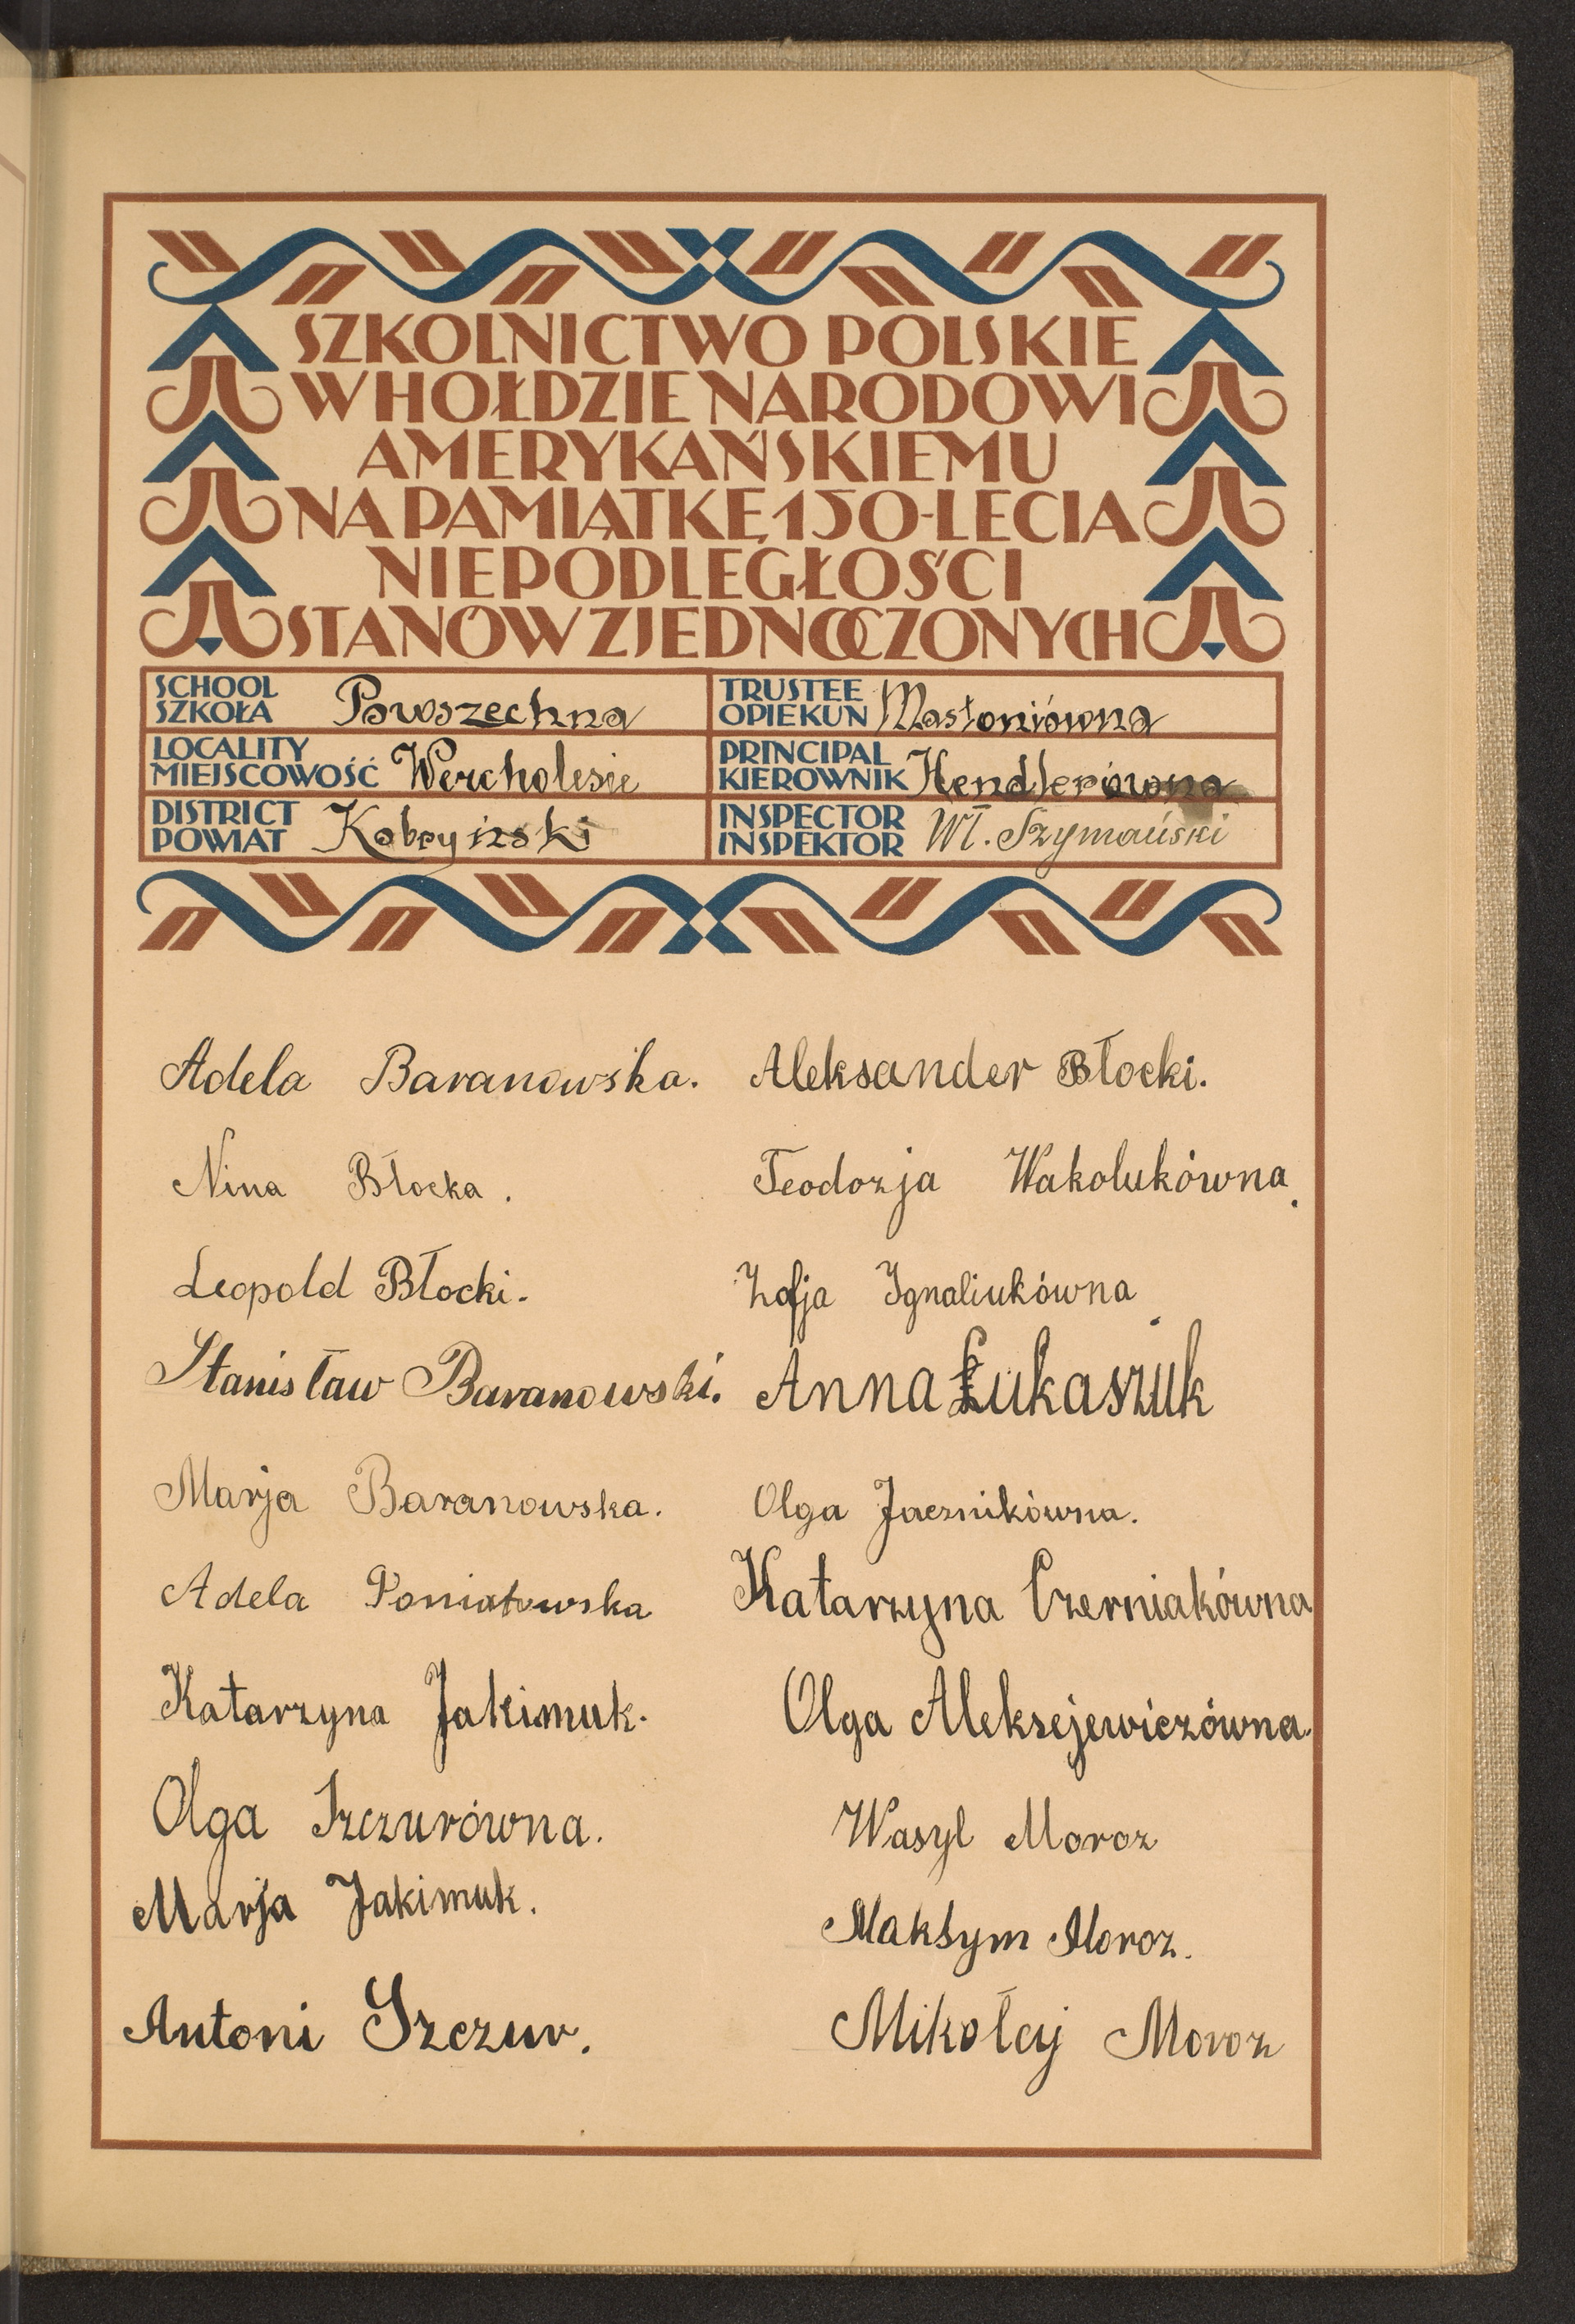 SZKOLNICTWO POLSKIE
W HOŁDZIE NARODOWI
AMERYKAŃSKIEMU
NA PAMIĄTKĘ 150-LECIA
NIEPODLEGŁOŚCI
STANÓW ZJEDNOCZONYCH
SCHOOL
SZKOŁA Powszechna
TRUSTEE
OPIEKUN Masłoniówna
LOCALITY
MIEJSCOWOŚĆ Wercholesie
PRINCIPAL
KIEROWNIK Hendlerówna
DISTRICT
POWIAT Kobryński
INSPECTOR
INSPEKTOR Wł. Szymański
Adela Baranowska.
Nina Błocka.
Leopold Błocki.
Stanisław Baranowski.
Marja Baranowska.
Adela Poniatowska
Katarzyna Jakimuk.
Olga Szczurówna.
Marja Jakimuk.
Antoni Szczur.
Aleksander Błocki.
Teodozja Wakolukówna.
Zofja Ignaliukówna.
Anna Łukaszuk
Olga Jacznikówna.
Katarzyna Czerniakówna
Olga Aleksejewiczówna.
Wasyl Moroz
Maksym Moroz.
Mikołaj Moroz